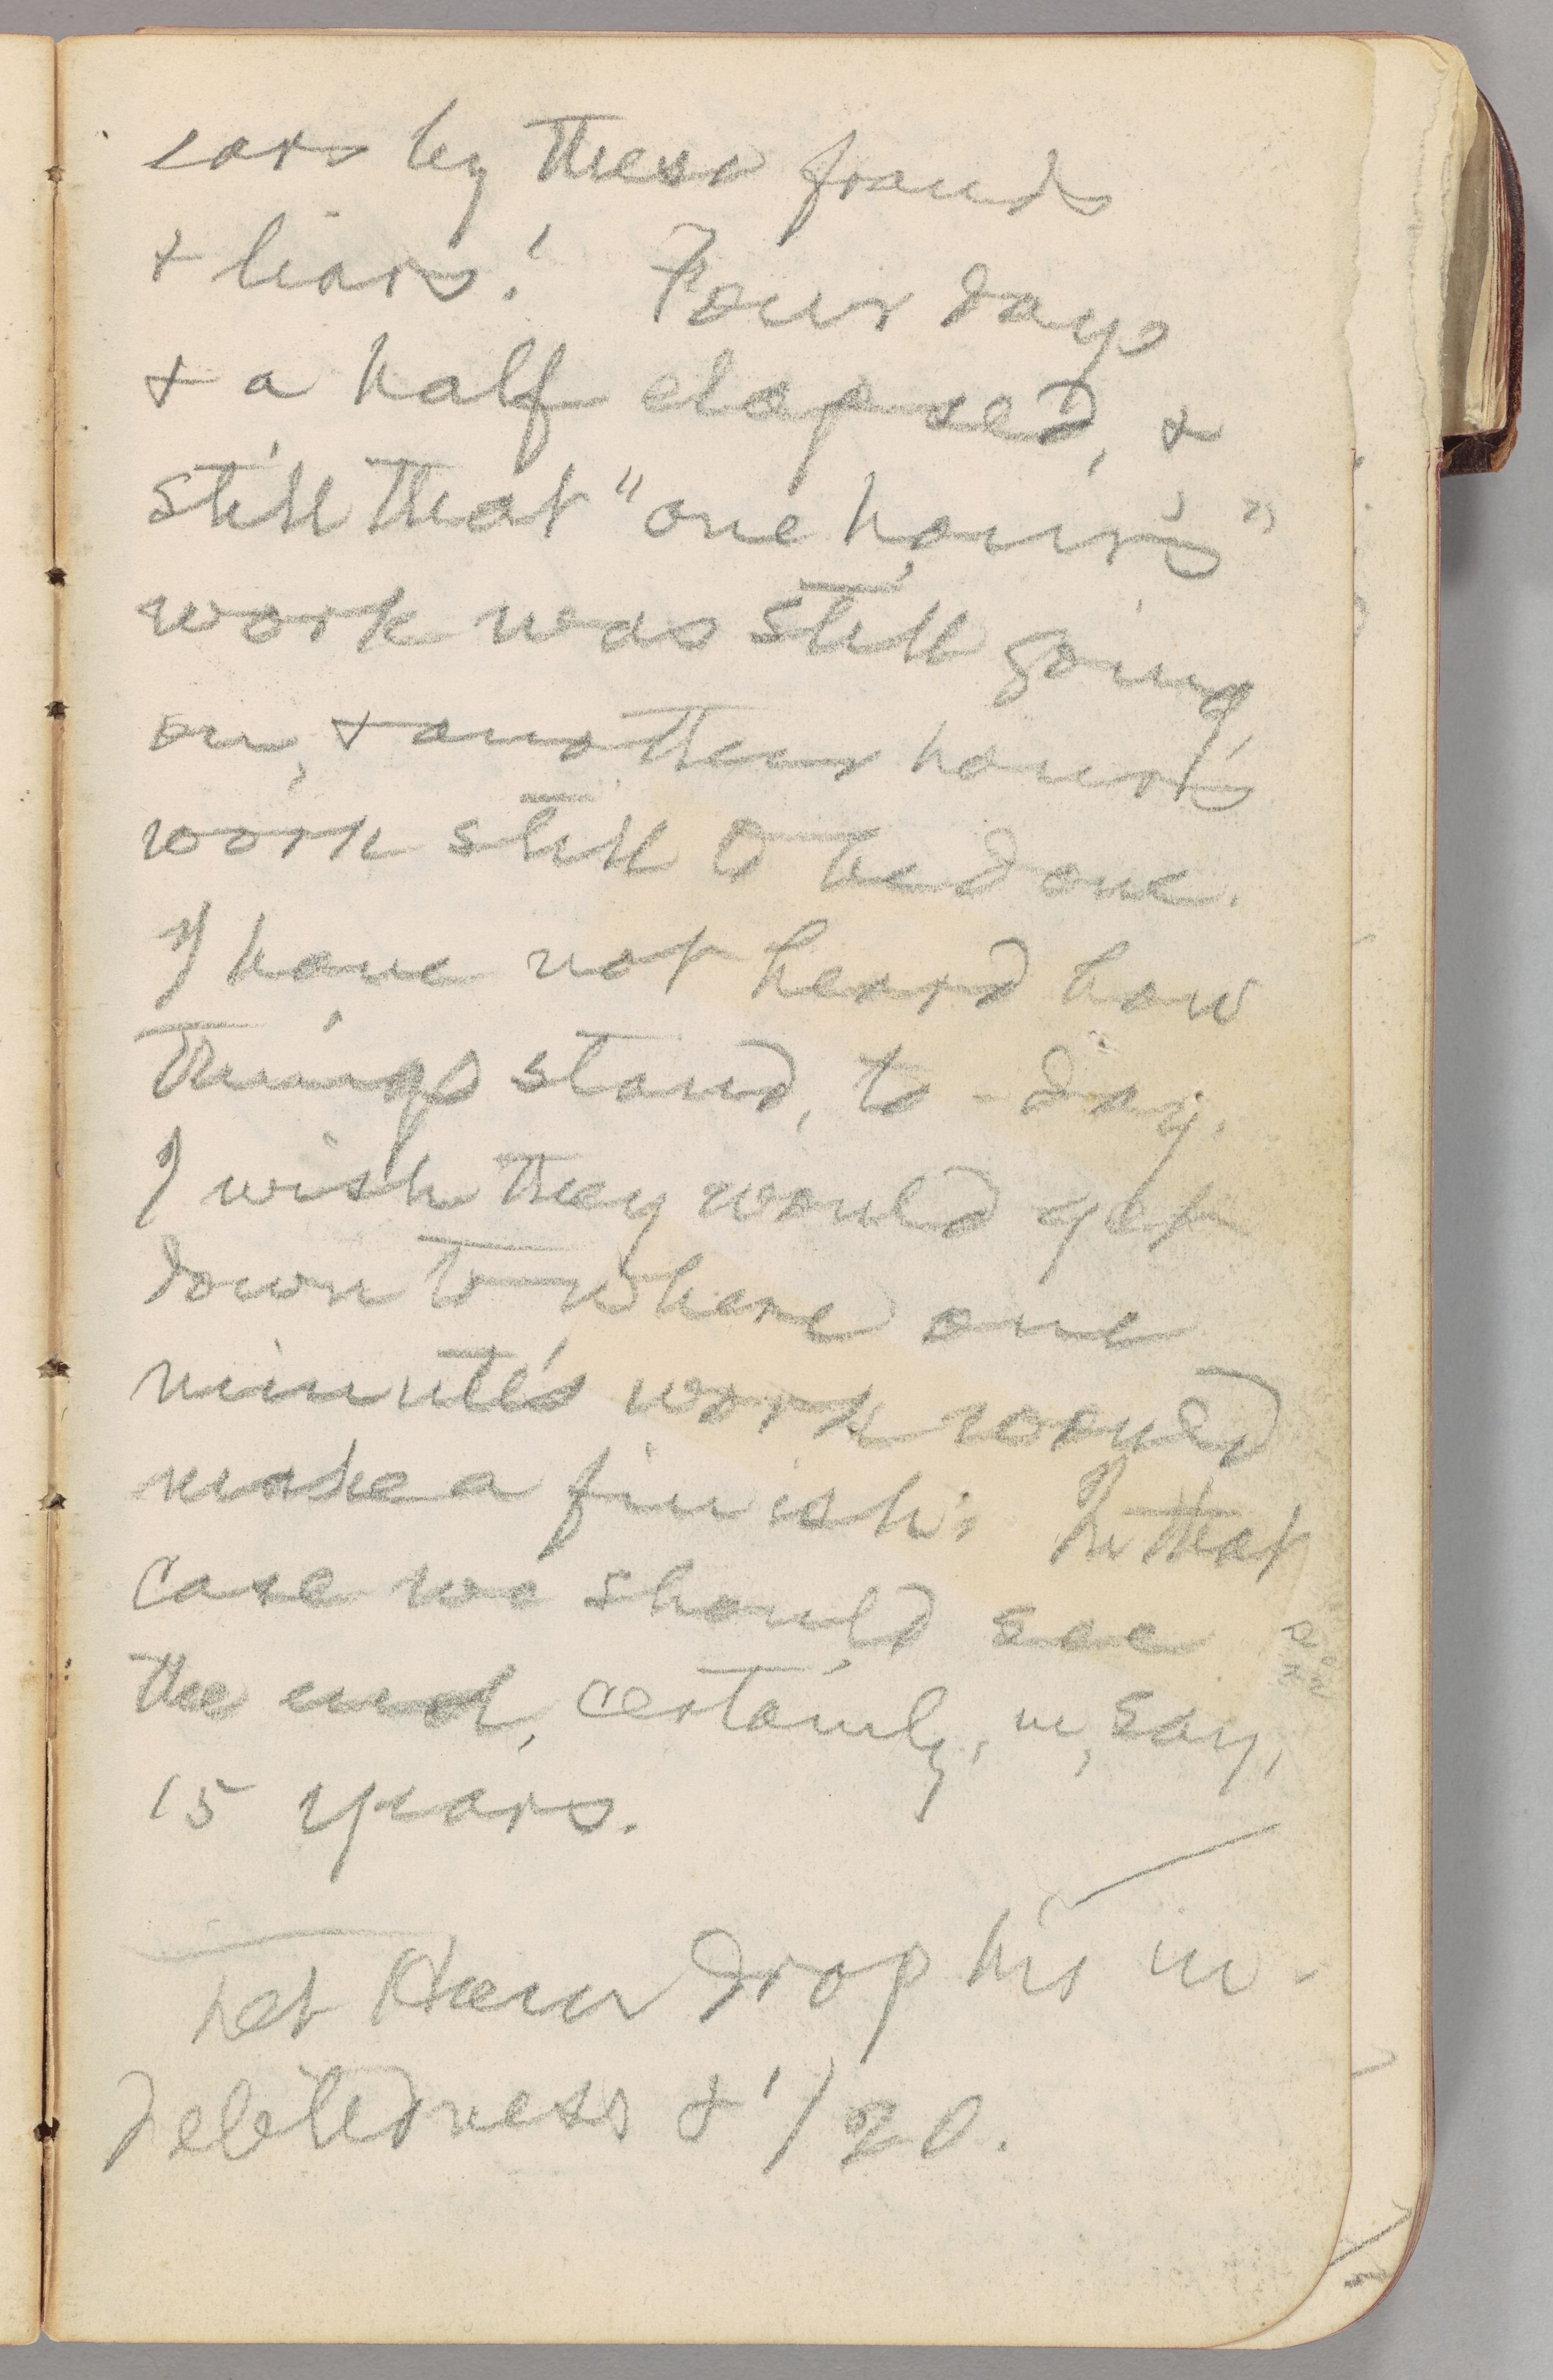 ears by these frauds
& liars! Four days
& a half elapsed, &
still that "one hour's"
work was still going
on, & another hour's
work still to be done.
I have not heard how
things stand, to-day.
I wish they would get
down to where one
minute's work would
make a finish: In that
case we should see
the end, certainly, in, say,
15 years.
Let Ham drop his in-
debtedness & 1/20.